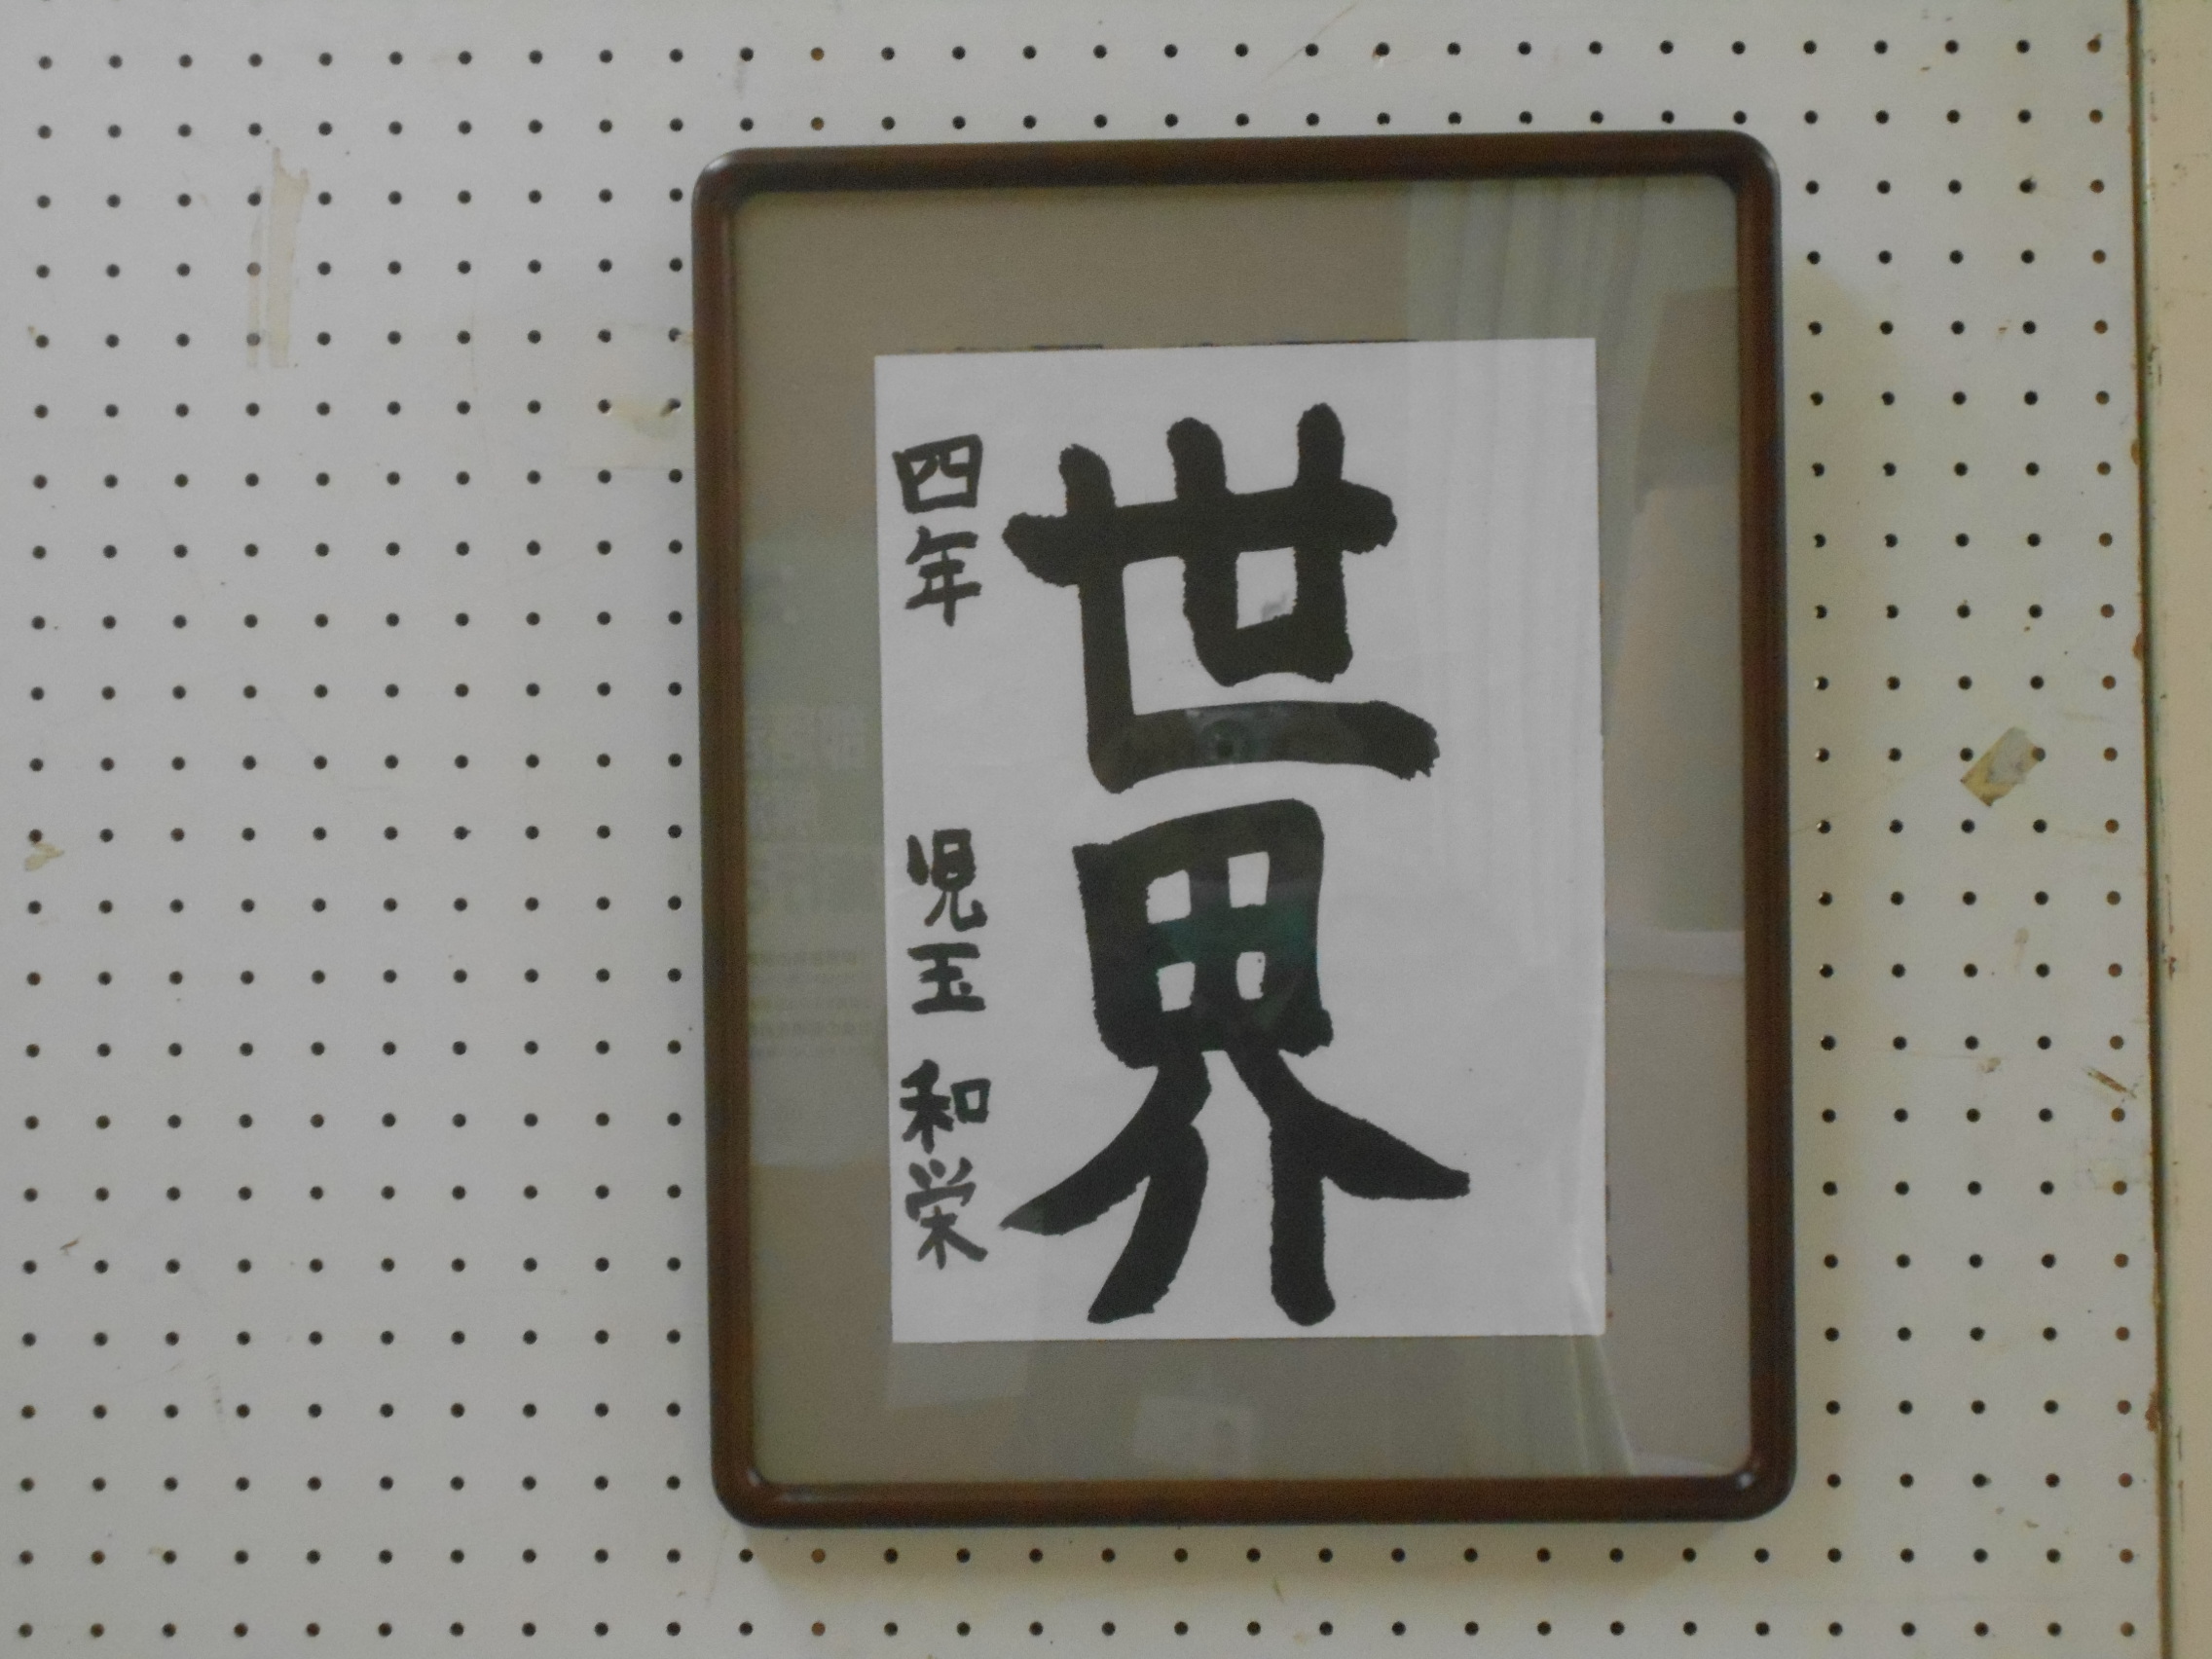 世界
四年 児玉 和栄